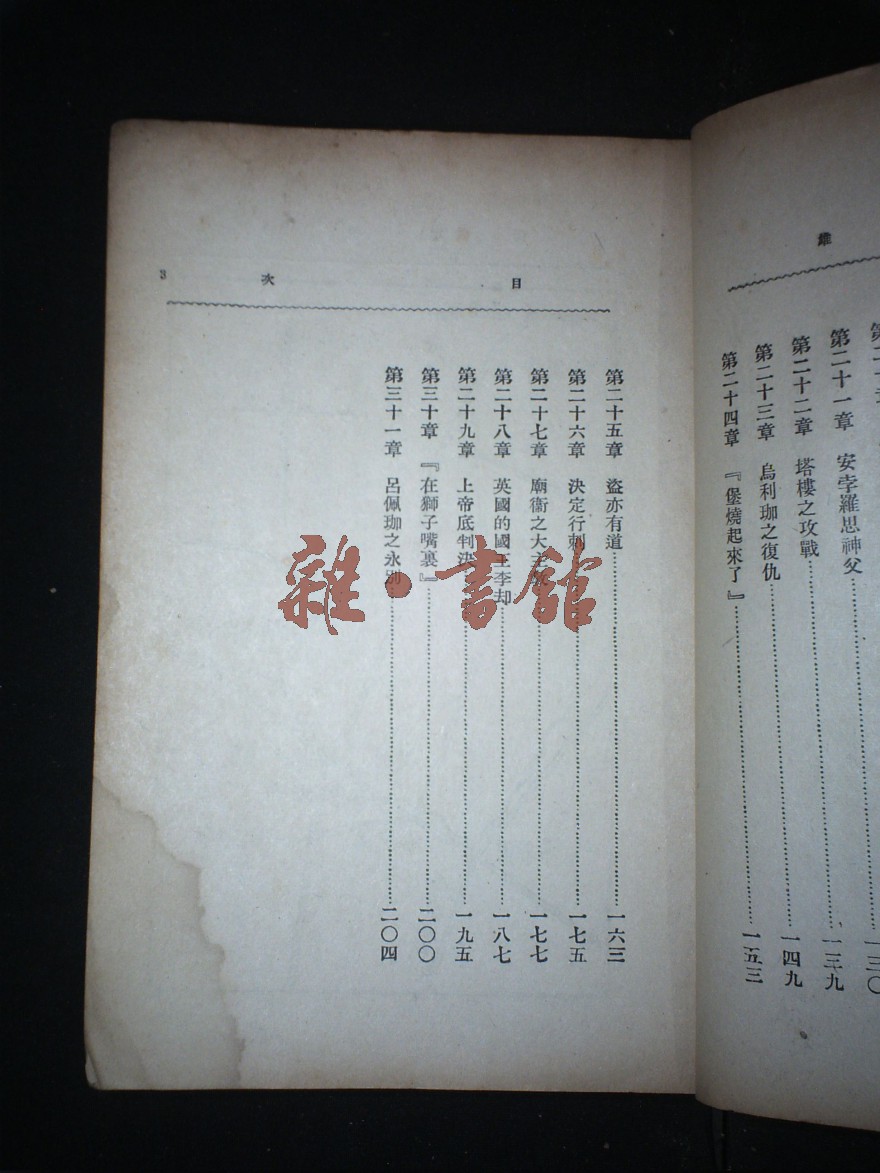 雜·書館
維
第二十一章 安孛羅思神父……一三九
第二十二章 塔樓之攻戰……一四九
第二十三章 烏利珈之復仇
第二十四章 『堡燒起來了』……一五三
一三〇
目 次 3
第二十五章 盜亦有道……一六三
第二十六章 決定行刺……一七五
第二十七章 廟衞之大主……一七七
第二十八章 英國的國王李却……一八七
第二十九章 上帝底判決……一九五
第三十章 『在獅子嘴裏』……二〇〇
第三十一章 呂佩珈之永別……二〇四